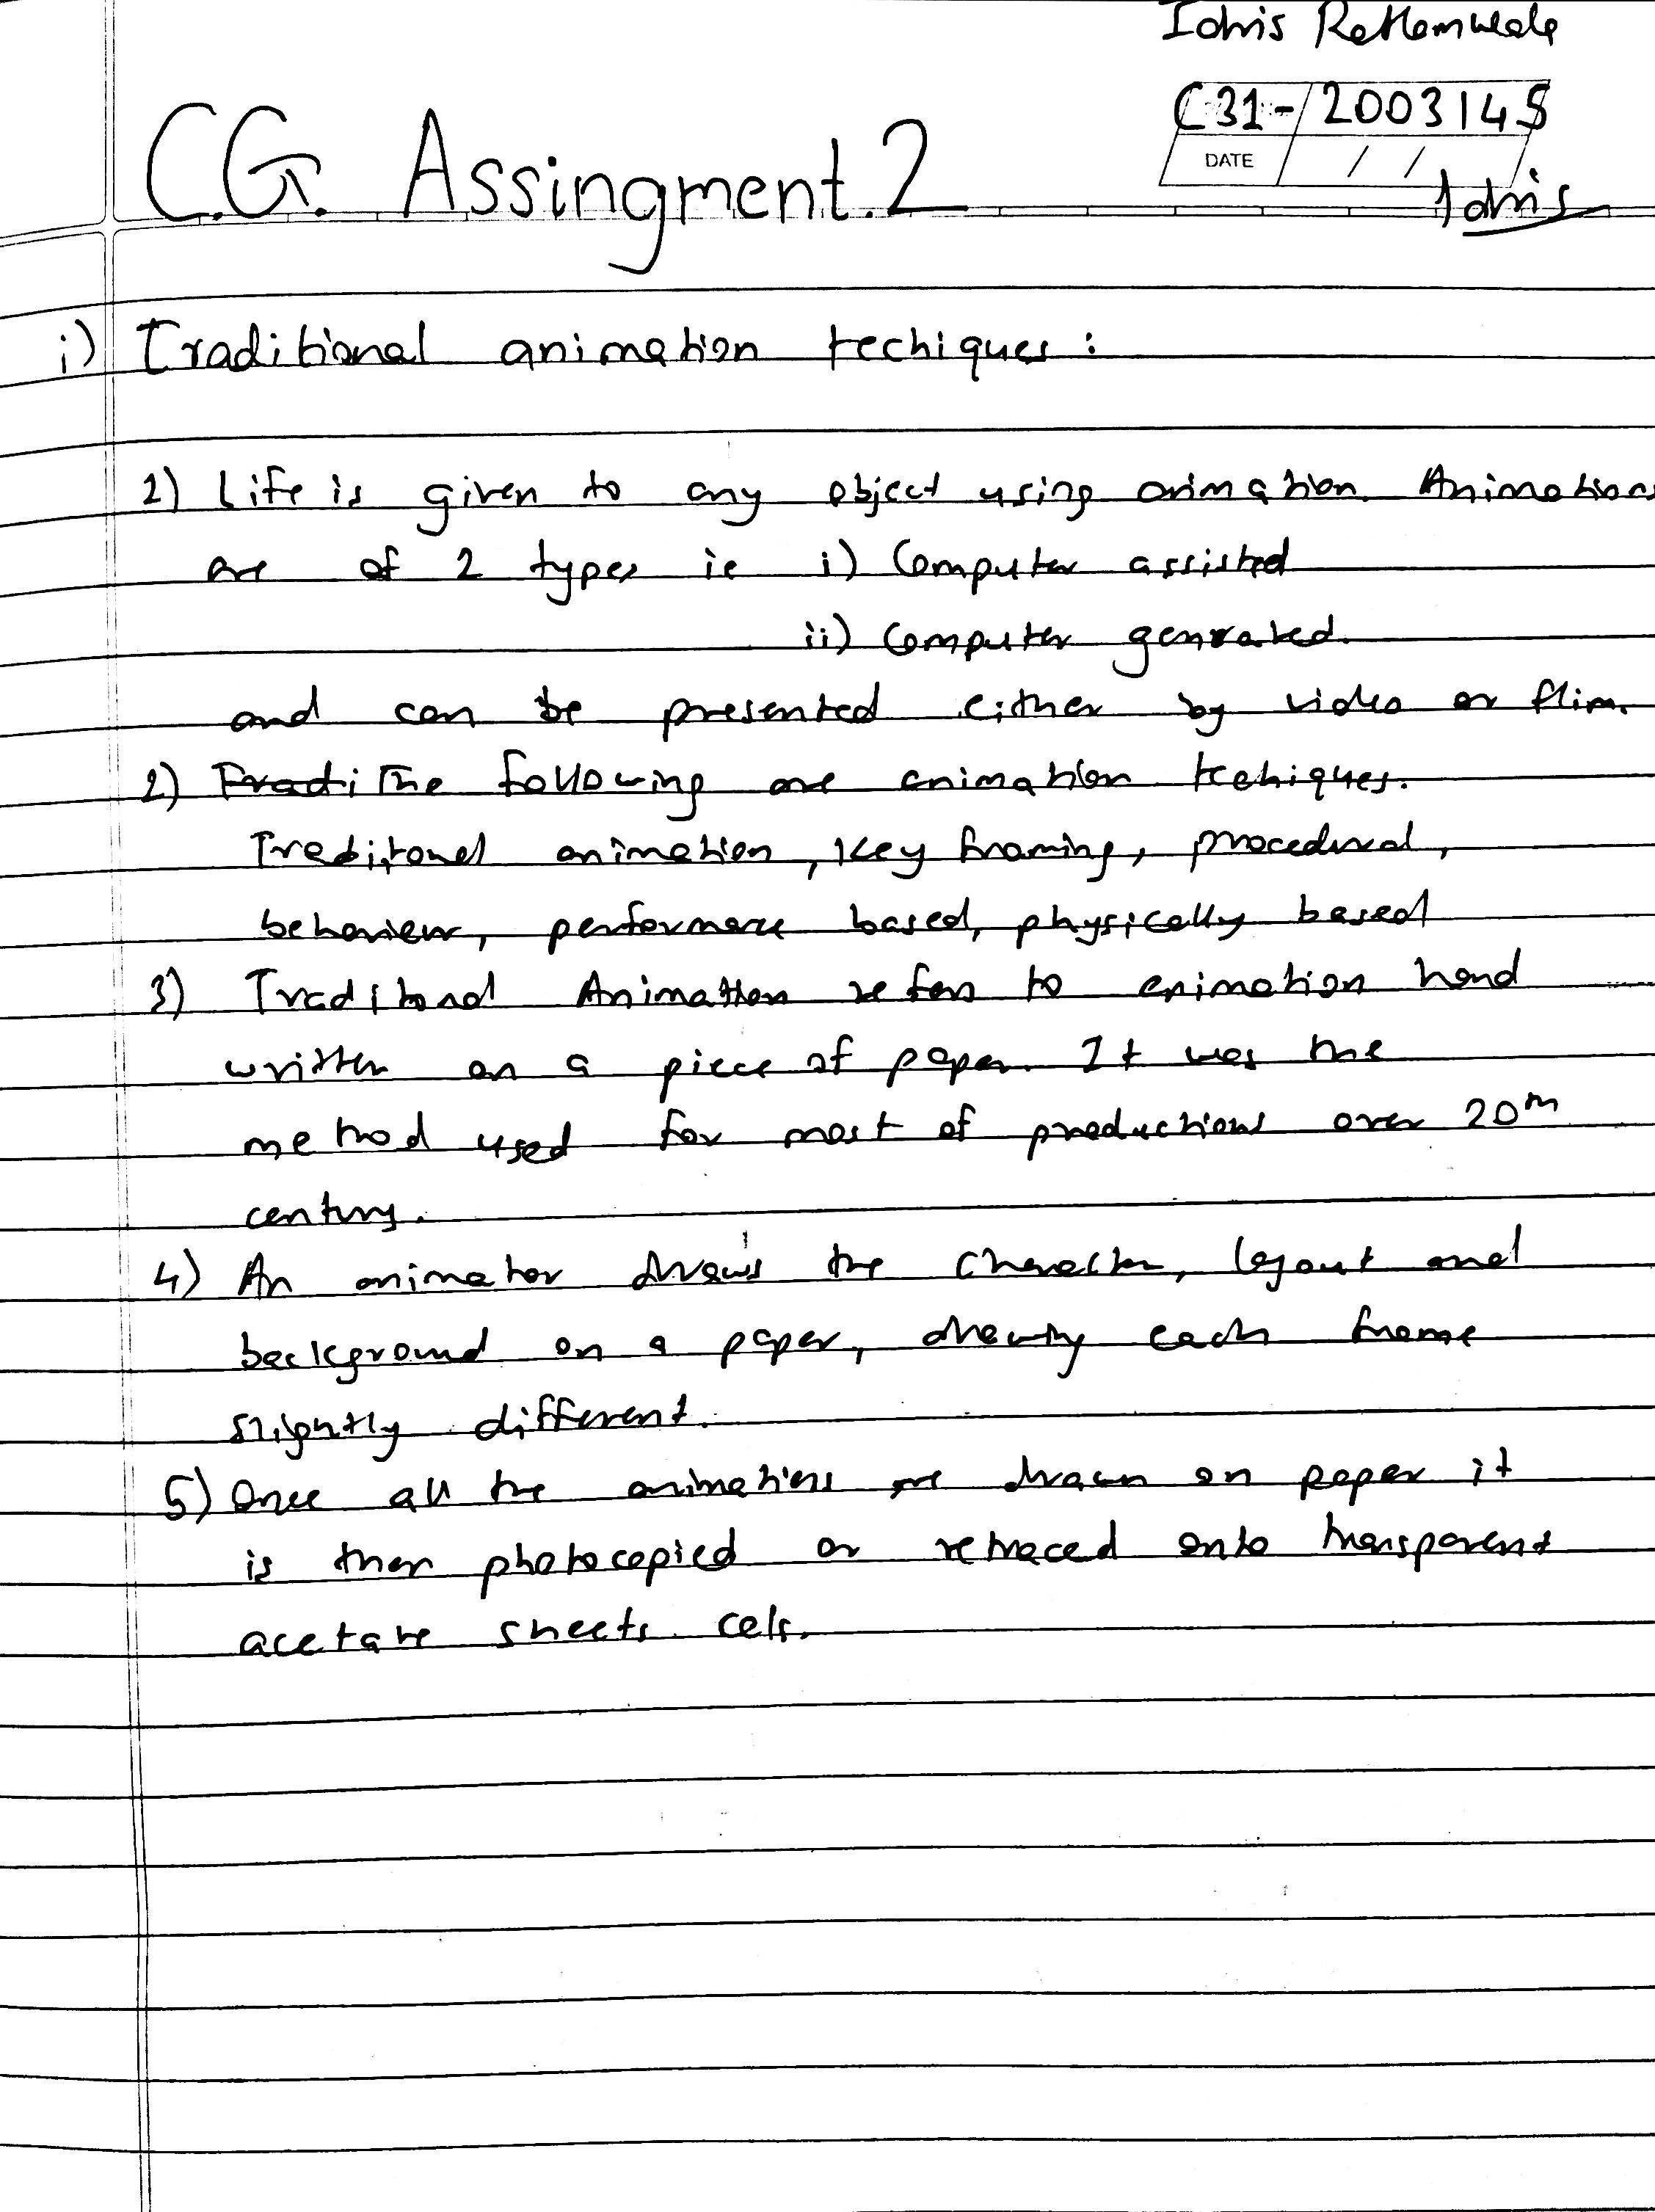 Idris Rattamwala
C31- 2003145
DATE / /
Idris
C.G. Assingment.2
i) Traditional animation techiques :
1) Life is given to any object using animation. Animations
are of 2 types ie i) Computer assisted
ii) Computer genrated.
and can be presented either by video or flim.
2) Tradi The following are animation techiques.
Traditonal animation, Key framing, procedural,
behaviour, performance based, physically based
3) Traditonal Animation refers to animation hand
written on a piece of paper. It was the
method used for most of productions over 20th
century.
4) An animator draws the character, layout and
background on a paper, drawing each frame
slightly different.
5) Once all the animations are drawn on paper it
is then photocopied or retraced onto transparent
acetate sheets cels.